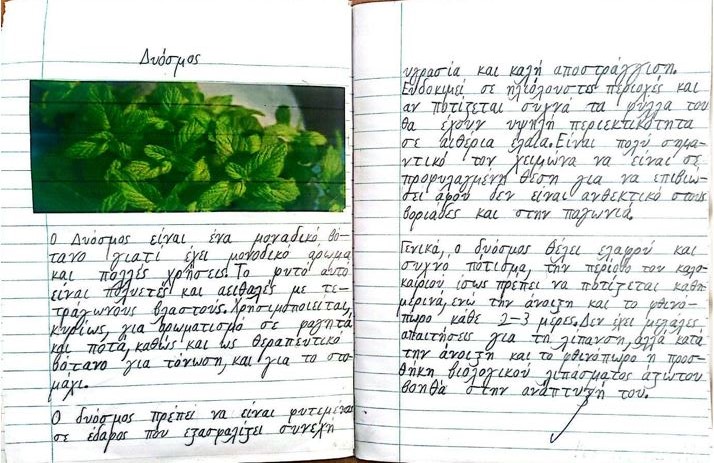 Δυόσμος
Ο Δυόσμος είναι ένα μοναδικό βό-
τανο γιατί έχει μοναδικό άρωμα
και πολλές χρήσεις. Το φυτό αυτό
είναι πολυετές και αειθαλές με τε-
τράγωνους βλαστούς. Χρησιμοποιείται,
κυρίως, για αρωματισμό σε φαγητά
και ποτά, καθώς και ως θεραπευτικό
βότανο για τόνωση, και για το στο-
μάχι.
Ο δυόσμος πρέπει να είναι φυτεμένος
σε έδαφος που εξασφαλίζει συνεχή
υγρασία και καλή αποστράγγιση.
Ευδοκιμεί σε ηλιόλουστες περιοχές και
αν ποτίζεται συχνά τα φύλλα του
θα έχουν υψηλή περιεκτικότητα
σε αιθέρια έλαια. Είναι πολύ σημα-
ντικό τον χειμώνα να είναι σε
προφυλαγμένη θέση για να επιβιώ-
σει αφού δεν είναι ανθεκτικό στους
βοριάδες και στην παγωνιά.
Γενικά, ο δυόσμος θέλει ελαφρύ και
συχνό πότισμα, την περίοδο του καλο-
καιριού ίσως πρέπει να ποτίζεται καθη-
μερινά, ενώ την άνοιξη και το φθινό-
πωρο κάθε 2-3 μέρες. Δεν έχει μεγάλες
απαιτήσεις για τη λίπανση, αλλά κατά
την άνοιξη και το φθινόπωρο η προσ-
θήκη βιολογικού λιπάσματος αζώτου
βοηθά στην ανάπτυξή του.